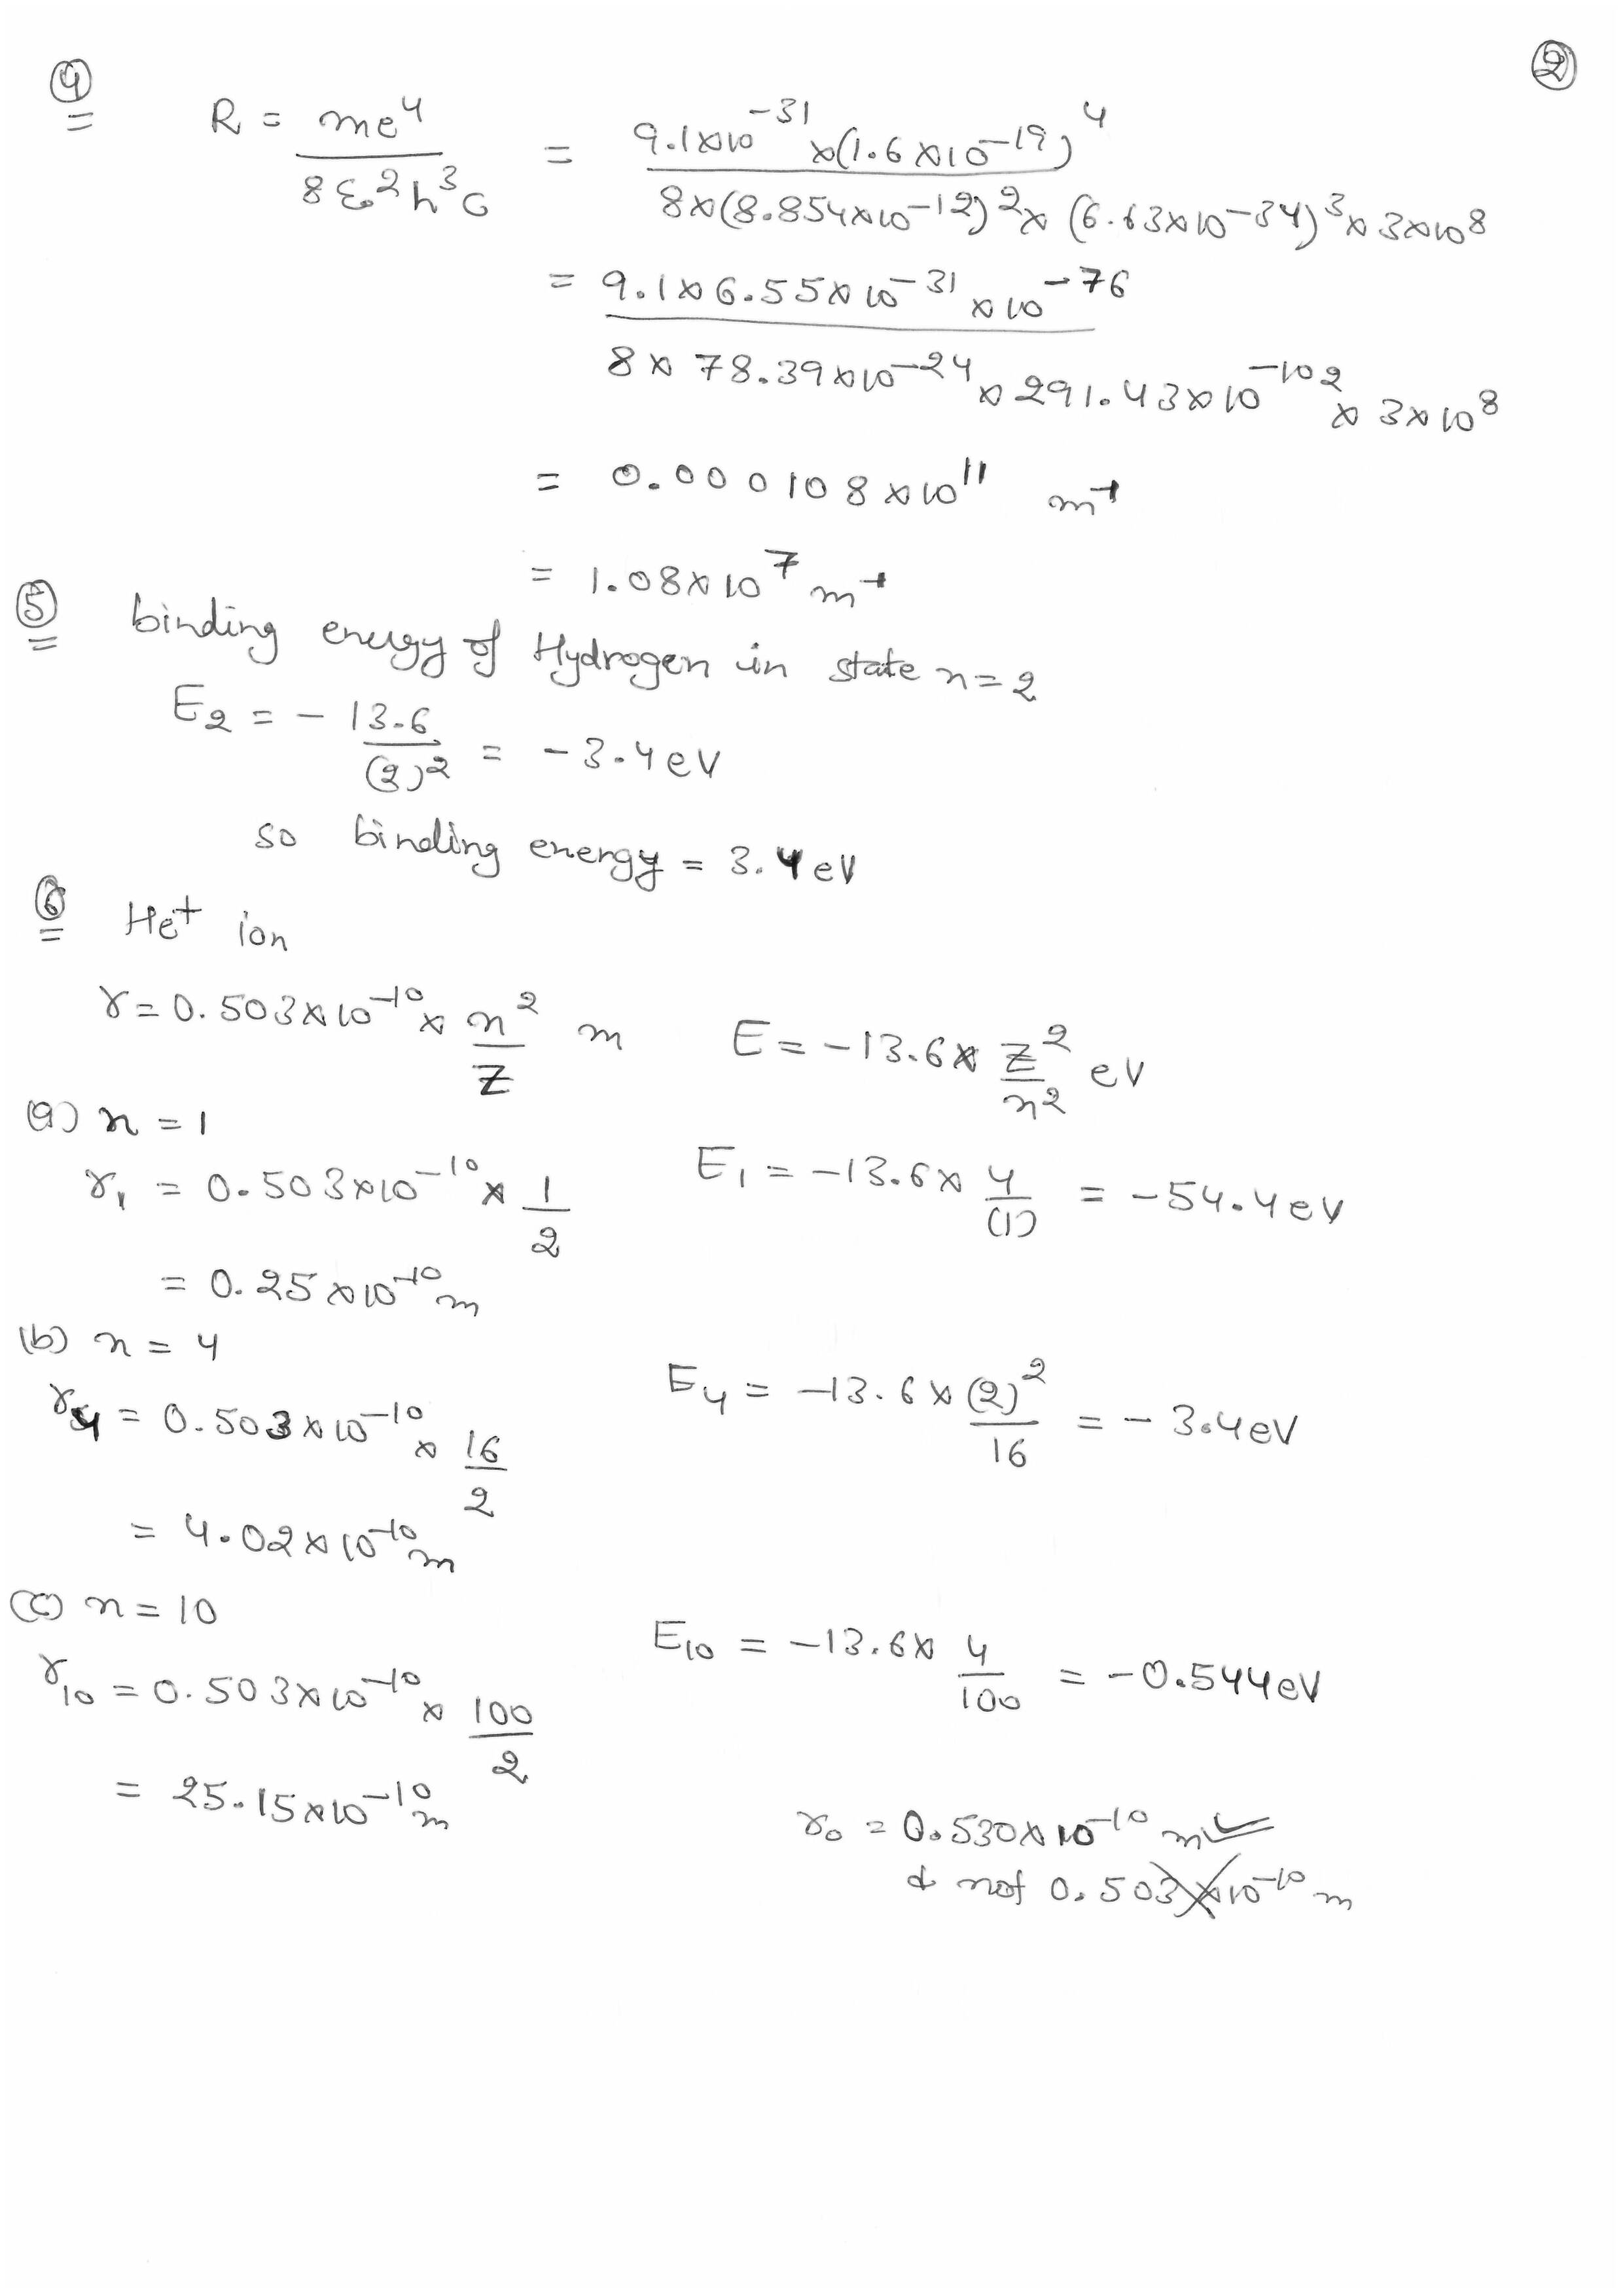 ④ ②
R = me⁴ / 8ε₀²h³c = 9.1×10⁻³¹ ×(1.6×10⁻¹⁹)⁴ / 8×(8.854×10⁻¹²)²× (6.63×10⁻³⁴)³× 3×10⁸
= 9.1×6.55×10⁻³¹ ×10⁻⁷⁶ / 8× 78.39×10⁻²⁴ × 291.43×10⁻¹⁰² × 3×10⁸
= 0.000108×10¹¹ m⁻¹
= 1.08×10⁷ m⁻¹
⑤ binding energy of Hydrogen in state n=2
E₂ = - 13.6 / (2)² = - 3.4 eV
so binding energy = 3.4 eV
⑥ He⁺ ion
r = 0.503×10⁻¹⁰ × n² / Z m E = -13.6× Z² / n² eV
(a) n = 1
r₁ = 0.503×10⁻¹⁰ × 1 / 2 E₁ = -13.6× 4 / (1) = -54.4 eV
= 0.25×10⁻¹⁰ m
(b) n = 4
r₄ = 0.503×10⁻¹⁰ × 16 / 2 E₄ = -13.6×(2)² / 16 = - 3.4 eV
= 4.02×10⁻¹⁰ m
(c) n = 10
r₁₀ = 0.503×10⁻¹⁰ × 100 / 2 E₁₀ = -13.6× 4 / 100 = -0.544 eV
= 25.15×10⁻¹⁰ m
r₀ = 0.530×10⁻¹⁰ m ✓
& not 0.503×10⁻¹⁰ m